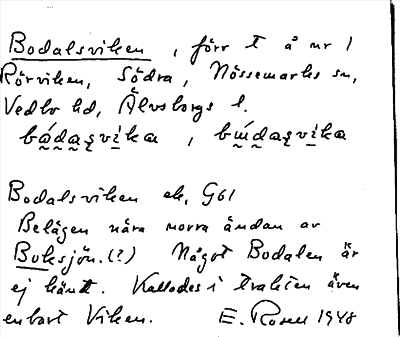 Bodalsviken, förr t å nr 1
Rörviken, Södra, Nössemarks sn,
Vedbo hd, Älvsborgs l.
bódaʂvika, bẃdaʂvika
Bodalsviken ek. G61
Belägen nära norra ändan av
Boksjön. (?) Något Bodalen är
ej känt. Kallades i trakten även
enbart Viken. E. Rosell 1948